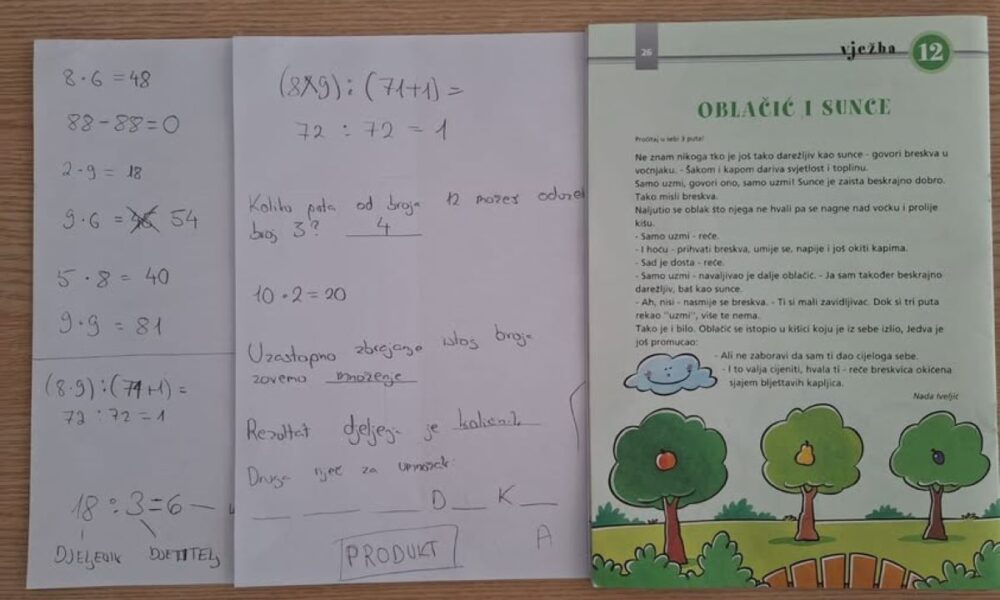 8 · 6 = 48
88 - 88 = 0
2 · 9 = 18
9 · 6 = 54
5 · 8 = 40
9 · 9 = 81
(8·9) : (71+1) =
72 : 72 = 1
18 : 3 = 6 —
DJELJENIK DJELITELJ
(8·9) : (71+1) =
72 : 72 = 1
Koliko puta od broja 12 možeš oduzet
broj 3? 4
10 · 2 = 20
Uzastopno zbrajanje istog broja
zovemo množenje
Rezultat djeljenja je količnik
Druga riječ za umnožak:
___ ___ ___ D ___ K ___
A
PRODUKT
26
vježba 12
OBLAČIĆ I SUNCE
Pročitaj u sebi 3 puta!
Ne znam nikoga tko je još tako darežljiv kao sunce - govori breskva u
voćnjaku. - Šakom i kapom dariva svjetlost i toplinu.
Samo uzmi, govori ono, samo uzmi! Sunce je zaista beskrajno dobro.
Tako misli breskva.
Naljutio se oblak što njega ne hvali pa se nagne nad voćku i prolije
kišu.
- Samo uzmi - reče.
- I hoću - prihvati breskva, umije se, napije i još okiti kapima.
- Sad je dosta - reče.
- Samo uzmi - navaljivao je dalje oblačić. - Ja sam također beskrajno
darežljiv, baš kao sunce.
- Ah, nisi - nasmije se breskva. - Ti si mali zavidljivac. Dok si tri puta
rekao "uzmi", više te nema.
Tako je i bilo. Oblačić se istopio u kišici koju je iz sebe izlio, Jedva je
još promucao:
- Ali ne zaboravi da sam ti dao cijeloga sebe.
- I to valja cijeniti, hvala ti - reče breskvica okićena
sjajem blještavih kapljica.
Nada Iveljić